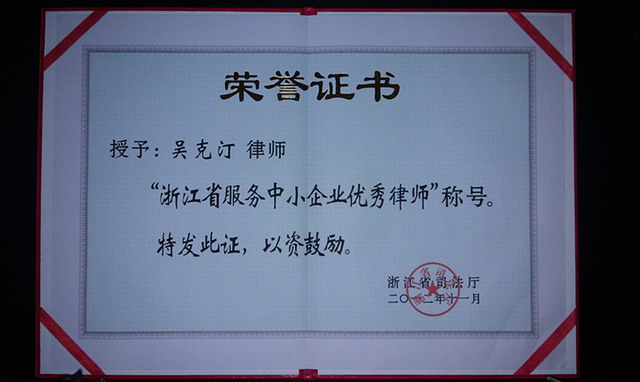 荣誉证书
授予：吴克汀 律师
“浙江省服务中小企业优秀律师”称号。
特发此证，以资鼓励。
浙江省司法厅
二〇一二年十一月